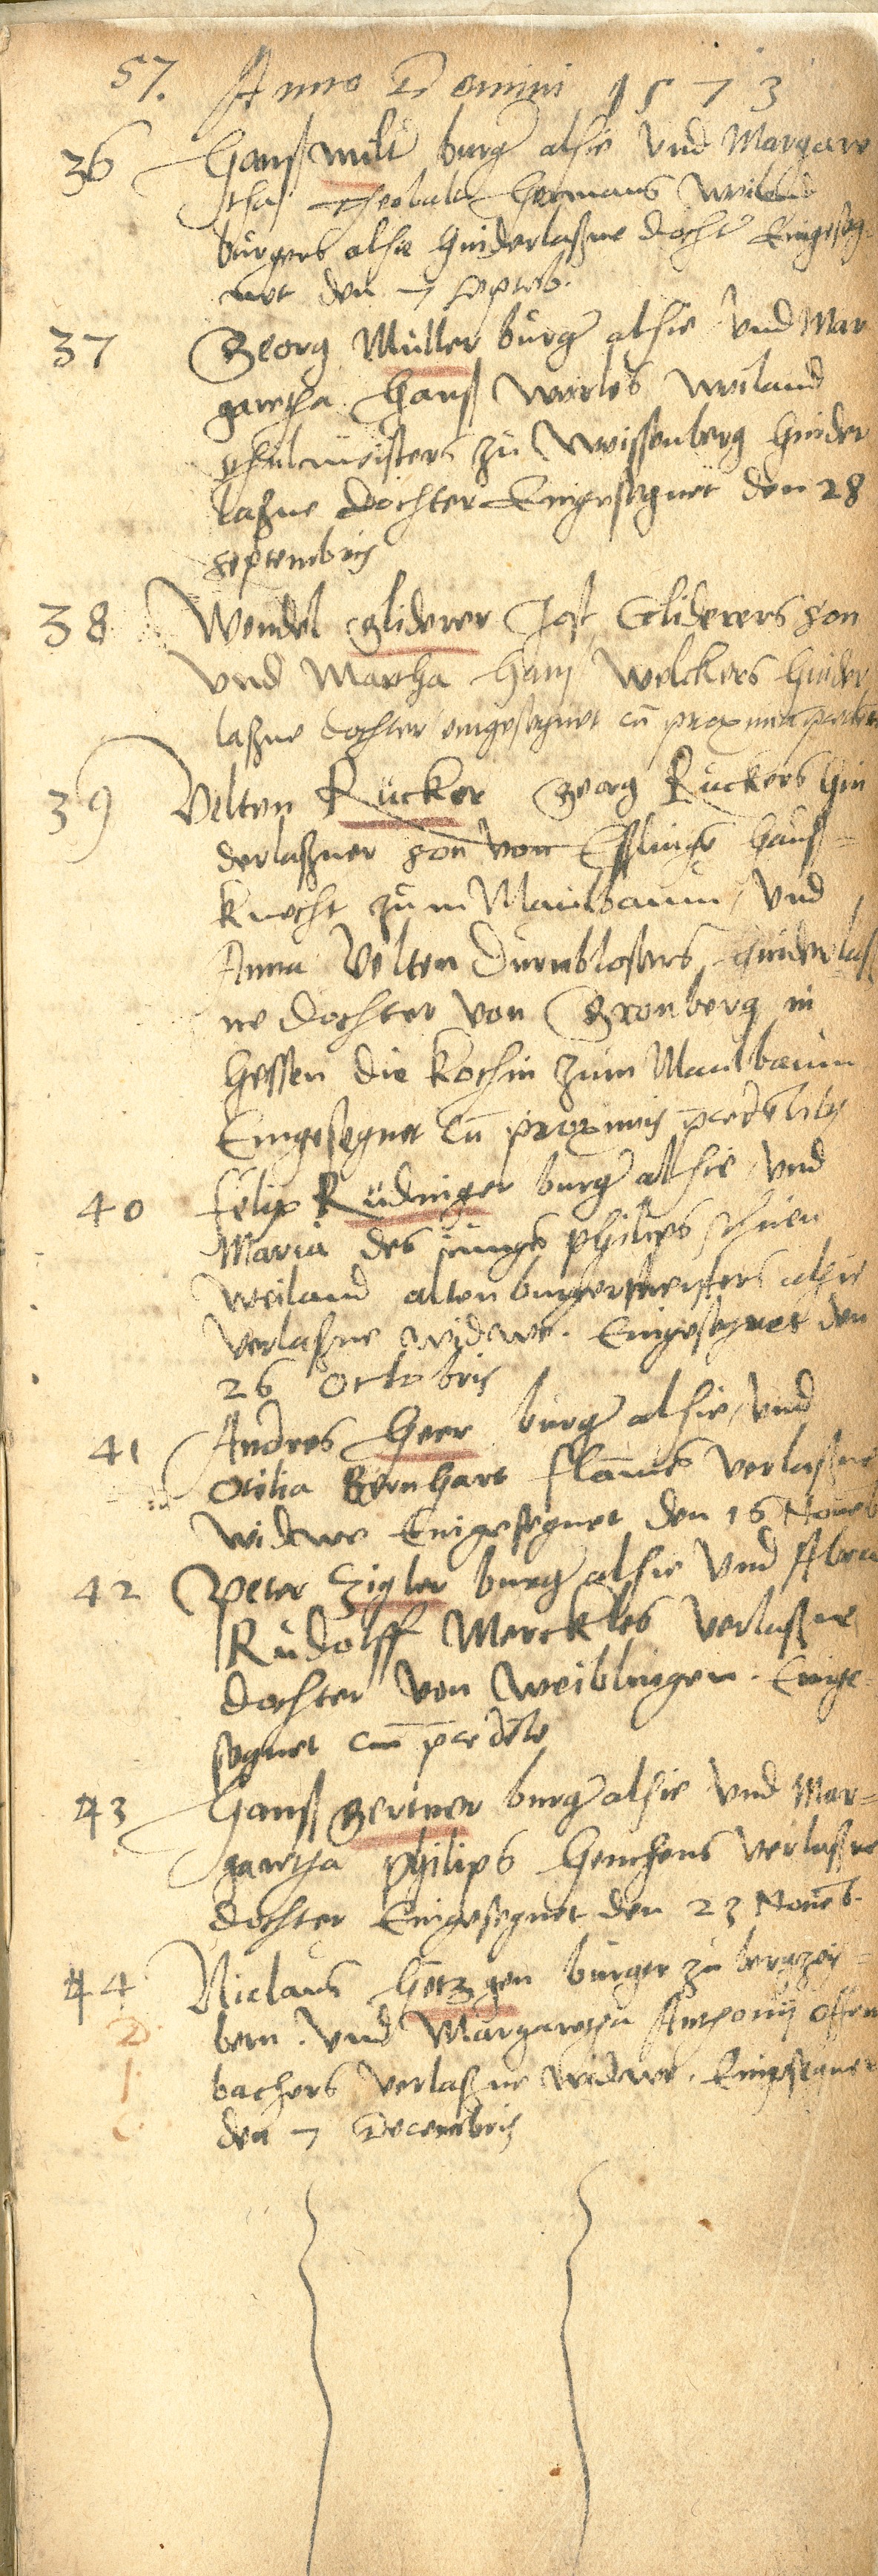 57. Anno Domini 1573
36 Hanß milt burger alhie und Margare
tha Theobald Hermans weiland
burgers alhie hinderlaßne dochter Eingeseg-
net den 7 septeb.
37 Georg Müller burger alhie und Mar
garetha Hanß Werles weiland
schulmeisters zu Weissenberg hinder
laßne dochter Eingesegnet den 28
septembris
38 Wendel Gliderer Jost Gliderers son
und Martha Hans Welckers hinder
laßne dochter eingesegnet cū proximā
39 Velten Rücker Georg Rückers hin
derlaßner son von Eßlingen hauß-
knecht zum Maulbaum, und
Anna Velten Durnblosers hinderlaß
ne dochter von Gronberg in
Hessen die kochin zum Maulbaum
Eingesegnet cū proximis pcedētibs
40 Felix Rüdinger burger alhie und
Maria des jungē philips
weiland alten burgermeisters alhie
verlaßne widwe. Eingesegnet den
26 Octobris
41 Andres Heer burger alhie, und
Otilia Bernhart flāmēs verlaßne
widwe Eingesegnet den 16 Noueb
42 Peter Zigler burger alhie und
Rudolff Merckles verlaßne
dochter von Weiblingen. Einge-
segnet cum pcedēte
43 Hanß Gertner burger alhie und Mar-
garetha philips Henchens verlaßne
dochter Eingesegnet den 23 Noueb.
44 Niclaus Hetzgen burger zu bergza-
bern. und Margaretha Anthonij Offen
bachers verlaßne widwe. Eingesegnet
den 7 Decembris